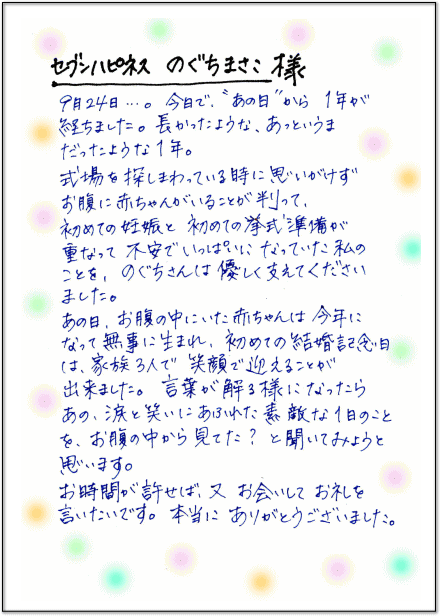 セブンハピネス のぐちまさこ 様
9月24日…。今日で、"あの日"から 1年が
経ちました。長かったような、あっというま
だったような1年。
式場を探しまわっている時に思いがけず
お腹に赤ちゃんがいることが判って、
初めての妊娠と 初めての挙式準備が
重なって 不安でいっぱいに なっていた私の
ことを、のぐちさんは 優しく支えてください
ました。
あの日、お腹の中にいた赤ちゃんは 今年に
なって無事に生まれ、初めての結婚記念日
は、家族3人で 笑顔で迎えることが
出来ました。言葉が解る様になったら
あの、涙と笑いにあふれた素敵な1日のこと
を、お腹の中から見てた？と聞いてみようと
思います。
お時間が許せば、又 お会いして お礼を
言いたいです。本当に ありがとうございました。